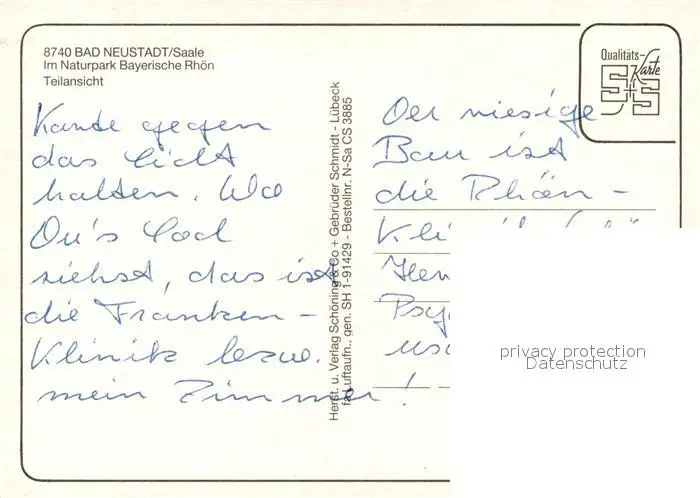 8740 BAD NEUSTADT/Saale
Im Naturpark Bayerische Rhön
Teilansicht
Karte gegen
das Licht
halten. Wo
Du's Loch
siehst, das ist
die Franken-
Klinik bezw.
mein Zimmer!
Herst. u. Verlag Schöning & Co + Gebrüder Schmidt - Lübeck
fa Luftaufn.. gen. SH 1-91429 - Bestellnr. N-Sa CS 3885
Qualitäts-
Karte
S+S
Der riesige
Bau ist
die Rhön-
Kli
privacy protection
Datenschutz